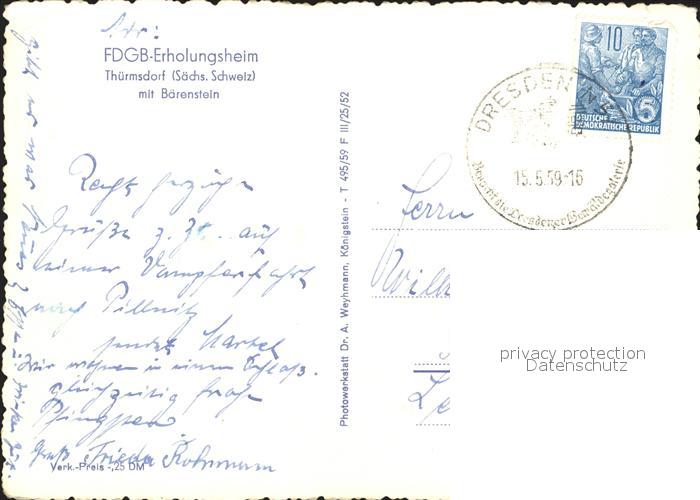 Adr:
FDGB-Erholungsheim
Thürmsdorf (Sächs. Schweiz)
mit Bärenstein
Recht herzliche
Grüße z. Zt. auf
einer Dampferfahrt
nach Pillnitz
sendet
Wir wohnen in einem Schloß.
gleichzeitig frohe
Pfingsten
Gruß Frieda
Verk.-Preis -,25 DM
Photowerkstatt Dr. A. Weyhmann, Königstein - T 495/59 F III/25/52
10
5
DEUTSCHE
DEMOKRATISCHE REPUBLIK
DRESDEN N
15.5.59-16
Besucht die Dresdener Gemäldegalerie
Herrn
privacy protection
Datenschutz